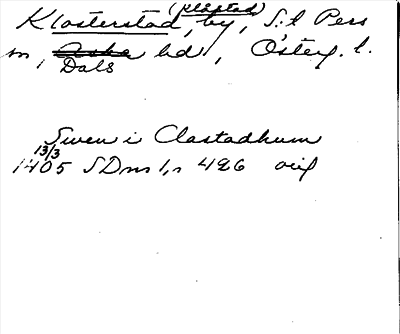 (Klåstad)
Klosterstad, by, S:t Pers
sn, Aska hd, Österg. l.
Dals
Swen i Clastadhum
13/3
1405 SDns 1, s 426 orig